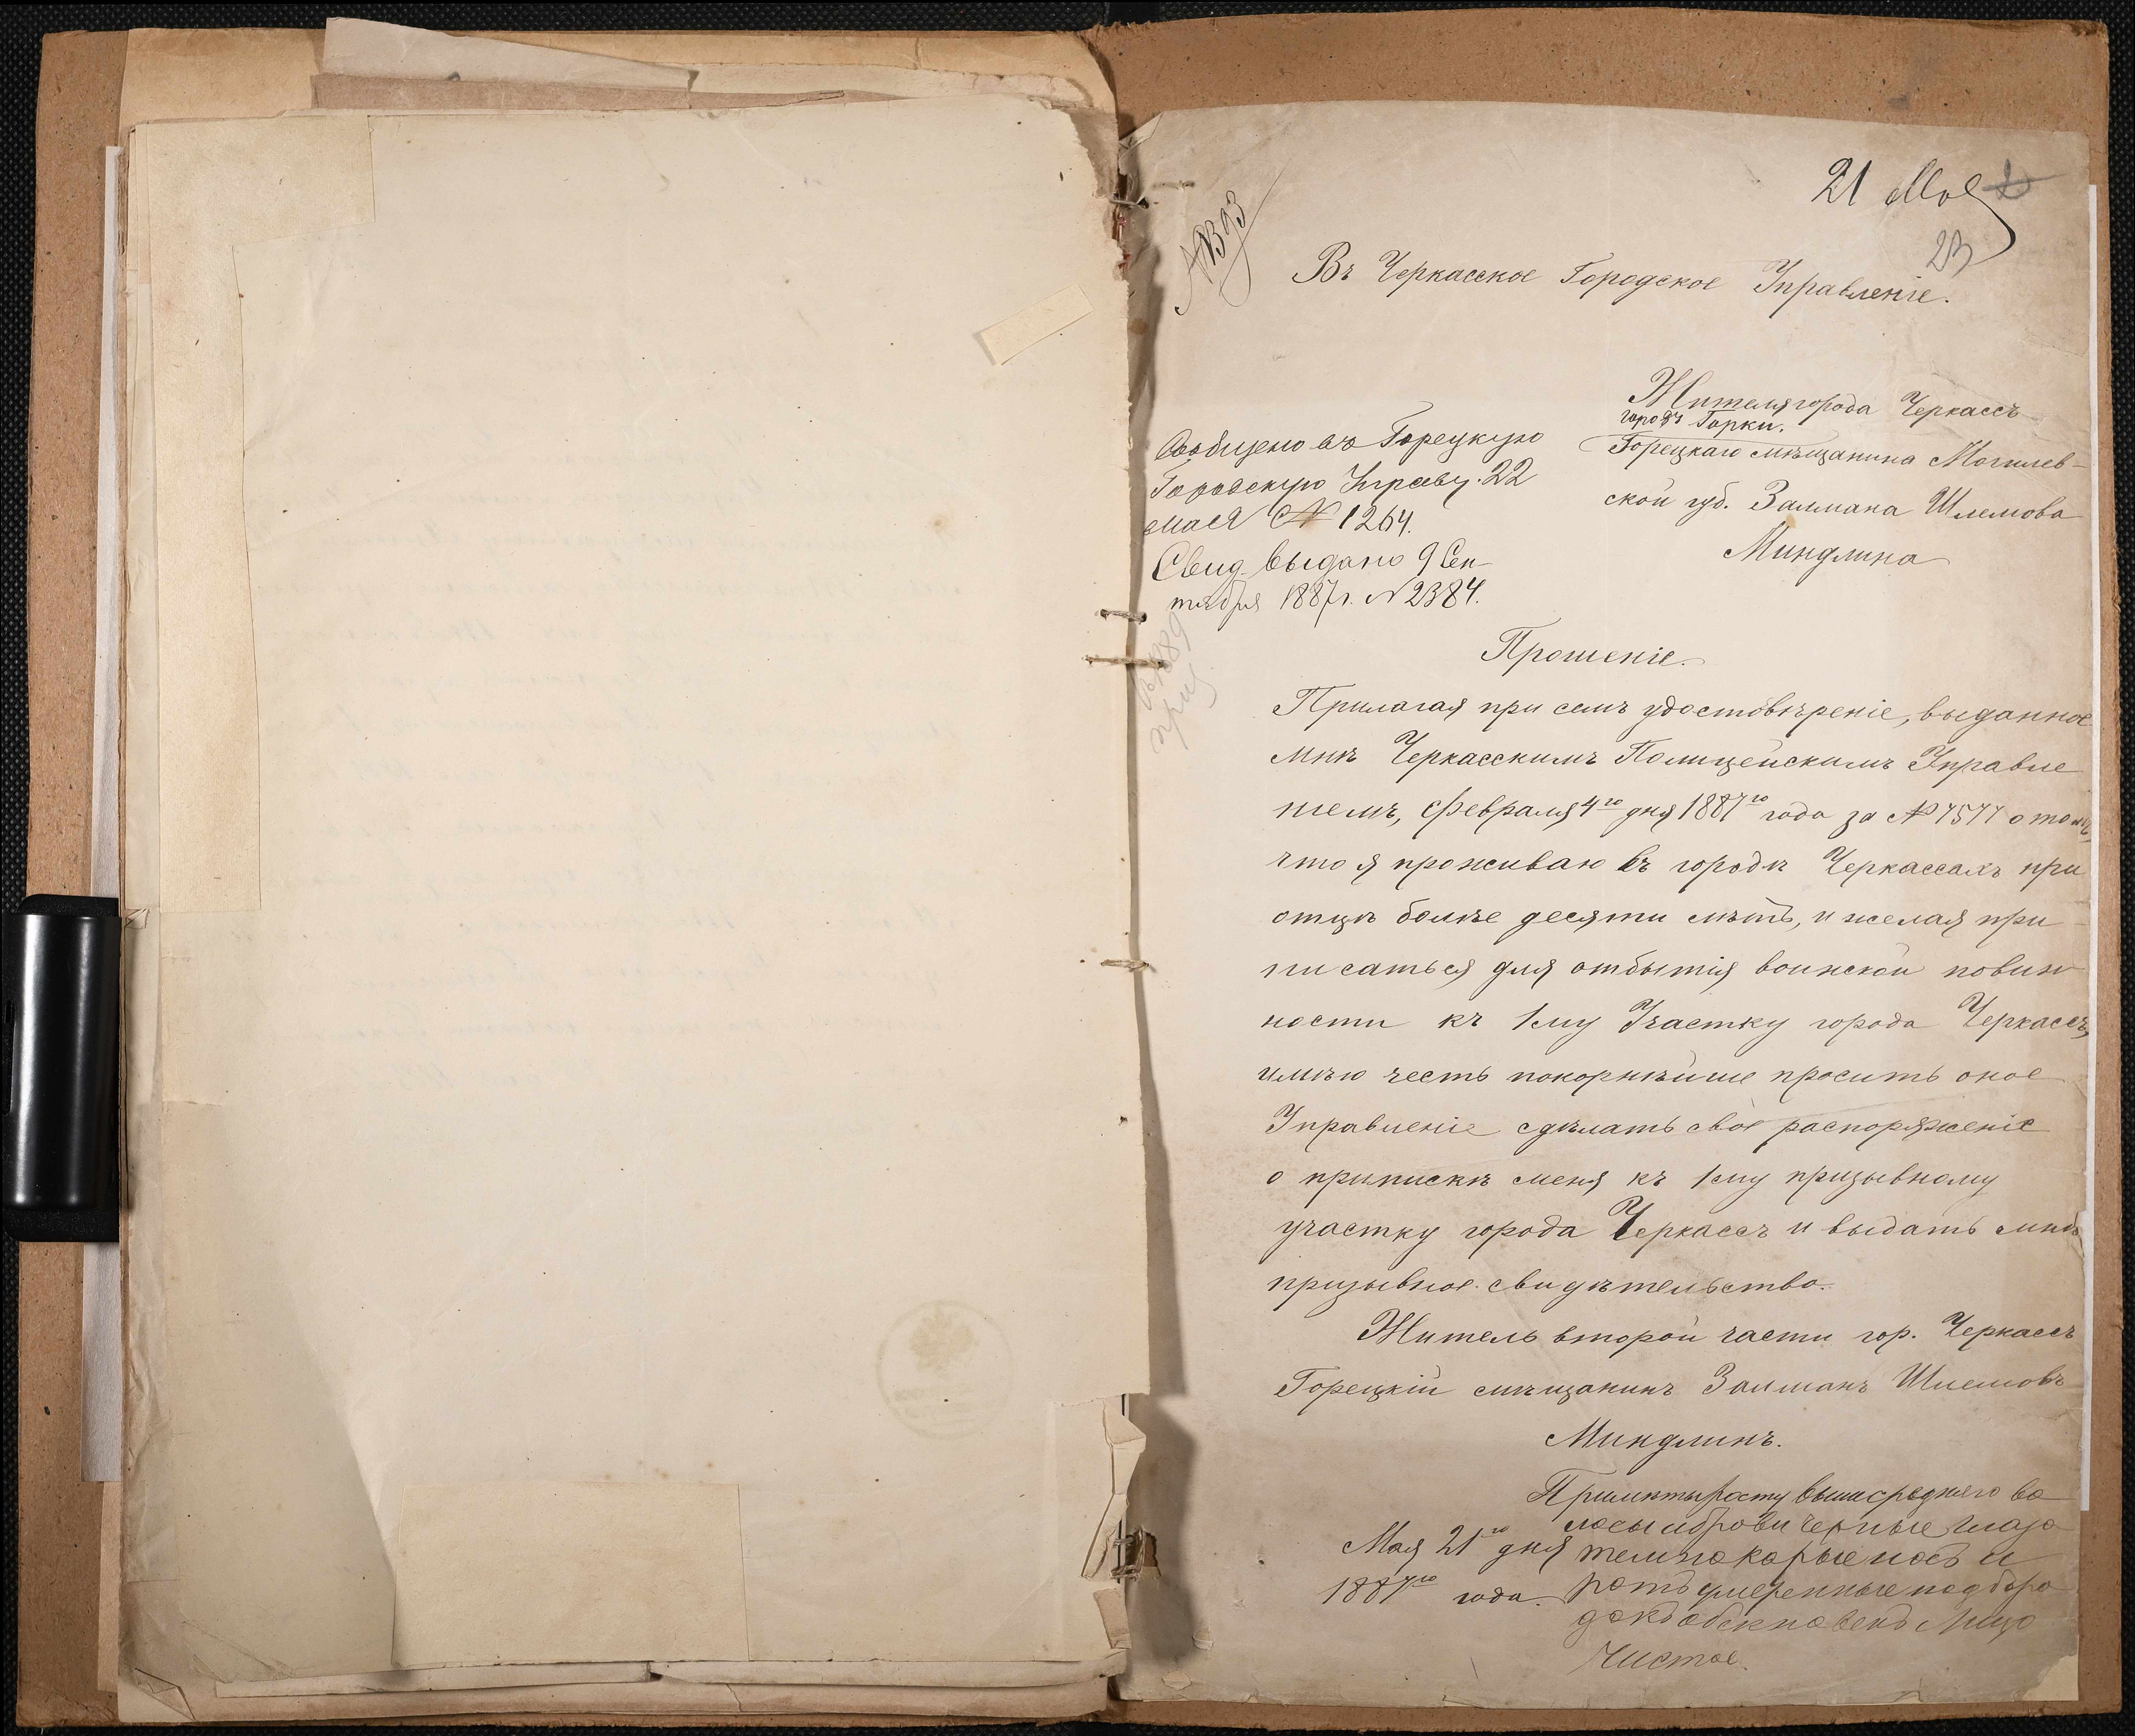 21 Мая
23
№ 1393
Въ Черкасское Городское Управленіе.
Жителя города Черкассъ
городъ Горки.
Горецкаго мѣщанина Могилев-
ской губ. Залмана Шлемова
Миндлина
Сообщено въ Горецкую
Городскую Управу. 22
мая № 1264.
Свид. выдано 9 Сен-
тября 1887г. № 2384.
Прошеніе.
Прилагая при семъ удостовѣреніе, выданное
мнѣ Черкасскимъ Полицейскимъ Управле
ніемъ, Февраля 4го дня 1887го года за № 7577 о томъ,
что я проживаю въ городѣ Черкассахъ при
отцѣ болѣе десяти лѣтъ, и желая при
писаться для отбытія воинской повин
ности къ 1му Участку города Черкассъ,
имѣю честь покорнѣйше просить оное
Управленіе сдѣлать свое распоряженіе
о припискѣ меня къ 1му призывному
участку города Черкассъ и выдать мнѣ
призывное свидѣтельство.
Житель второй части гор. Черкассъ
Горецкій мѣщанинъ Залманъ Шлемовъ
Миндлинъ.
Мая 21го дня
1887го года.
Примѣты росту выше средняго во
лосы и брови черные глаза
темно карые носъ и
ротъ умеренные подборо
докъ обекновенъ лицо
чистое.